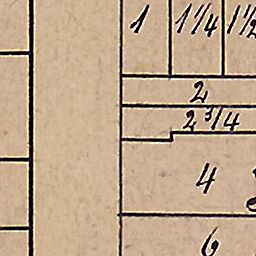 1 1¼ 1½
2
2¾
4
6